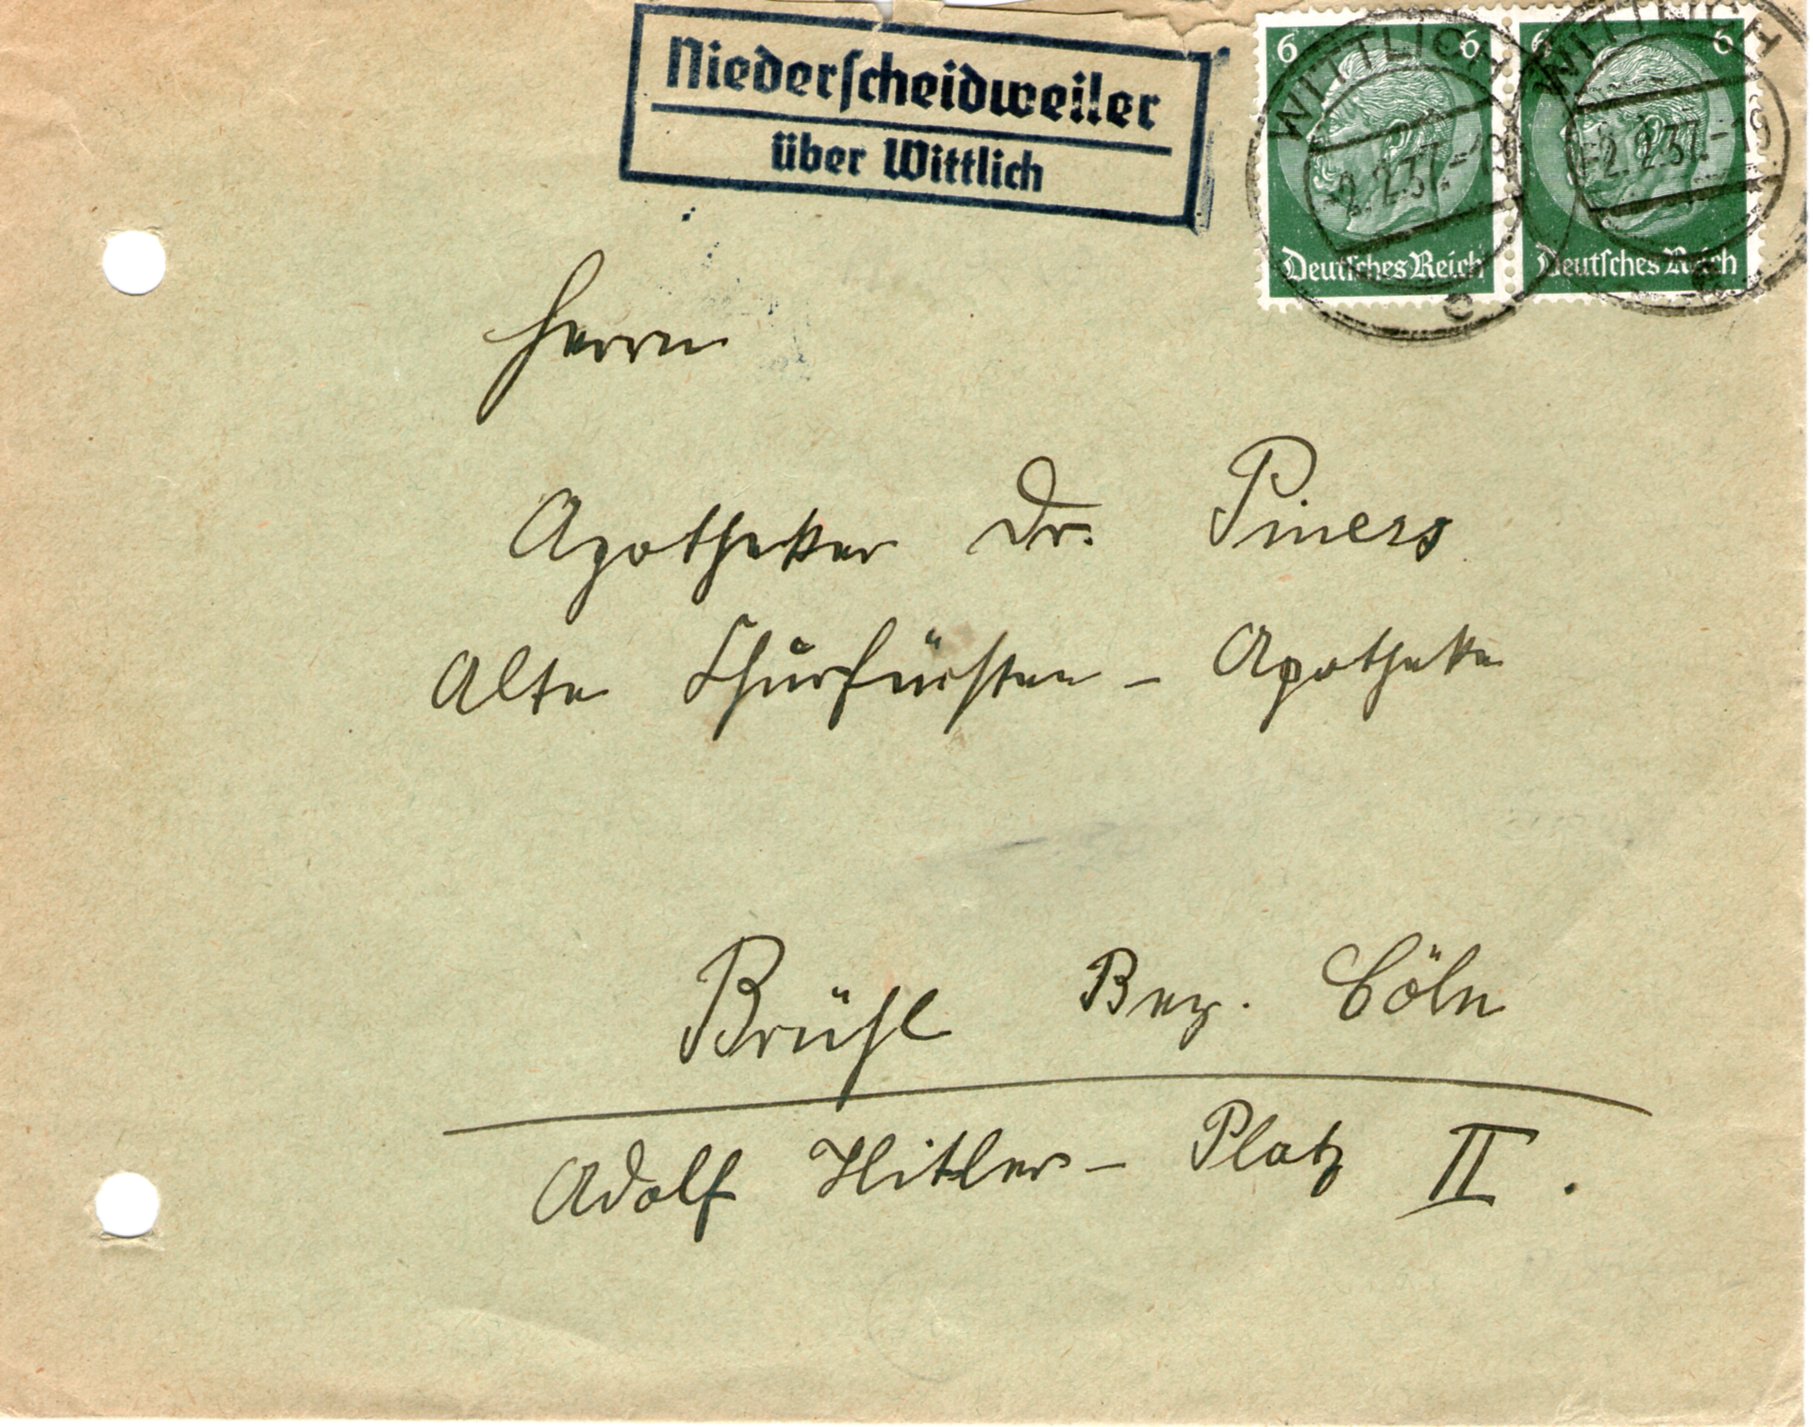 Niederscheidweiler
über Wittlich
6 6 6 6
WITTLICH WITTLICH
-2.2.37.-19 -2.2.37.-19
Deutsches Reich Deutsches Reich
c c
Herrn
Apotheker Dr. Piners
Alte Churfürsten - Apotheke
Brühl Bez. Cöln
Adolf Hitler - Platz II.